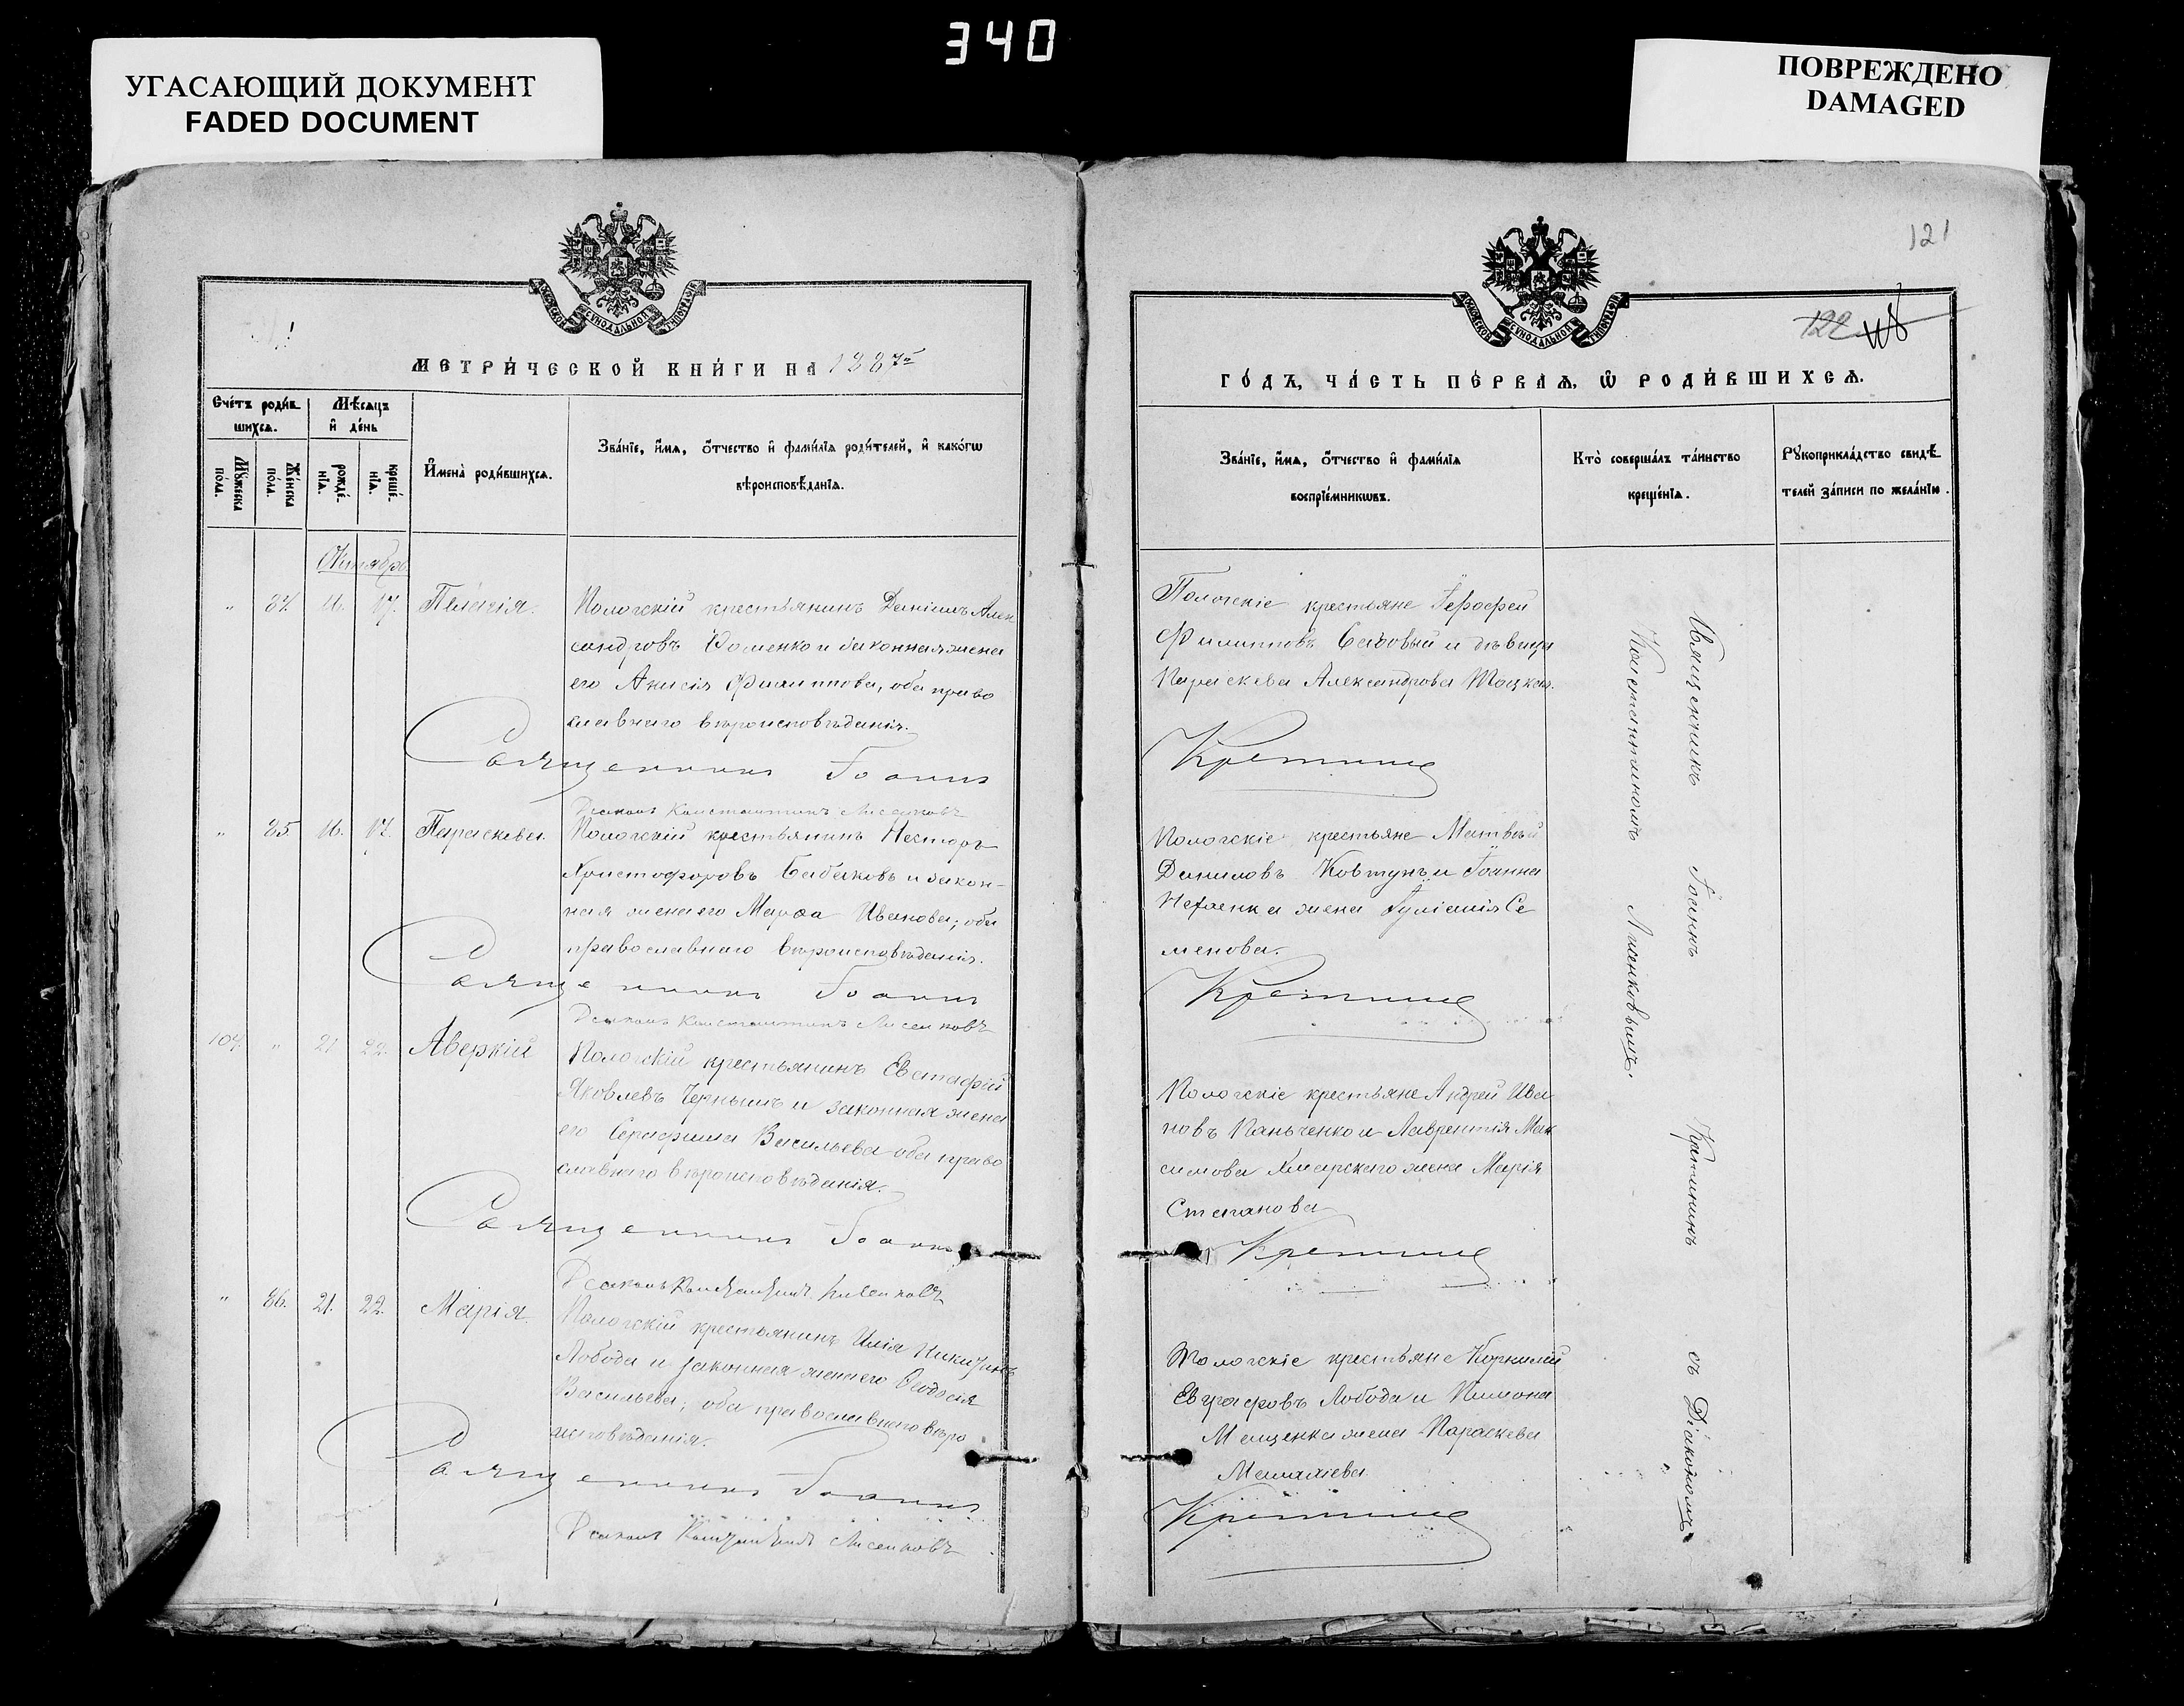 340
УГАСАЮЩИЙ ДОКУМЕНТ
FADED DOCUMENT
ПОВРЕЖДЕНО
DAMAGED
121
122
МЕТРИ́ЧЕСКОЙ КНИ́ГИ НА 1887й
ГО́ДЪ, ЧА́СТЬ ПЕ́РВАѦ, Ѿ РОДИ́ВШИХСѦ.
Сче́тъ роди́вшихсѧ.
Мѣ́сѧцъ и҆ де́нь
Му́жеска по́ла.
Же́нска по́ла.
рожде́нїѧ.
креще́нїѧ.
И҆мена̀ роди́вшихсѧ.
Зва́нїе, и҆́мѧ, ѻ҆́тчество и҆ фами́лїѧ роди́телей, и҆ како́гѡ
вѣроисповѣ́данїѧ.
Зва́нїе, и҆́мѧ, ѻ҆́тчество и҆ фами́лїѧ
воспрїе́мникѡвъ.
Кто̀ соверша́лъ та́инство
креще́нїѧ.
Рꙋкоприкла́дство свидѣ́-
телей за́писи по жела́нїю.
Октябрь
" 84. 16. 17. Пелагія.
Пологскій крестьянинъ Даніилъ Алек
сандровъ Фоменко и законная жена
его Анисія Филиппова, оба право
славнаго вѣроисповѣданія.
Священникъ Іоаннъ
Діаконъ Константинъ Лисенковъ
Пологскіе крестьяне Іерофей
Филипповъ Садовый и дѣвица
Параскева Александрова Тоцкая.
Кратинъ
" 85 16. 17. Параскева.
Пологскій крестьянинъ Несторъ
Христофоровъ Бабаковъ и закон-
ная жена его Марѳа Иванова; оба
православнаго вѣроисповѣданія.
Священникъ Іоаннъ
Діаконъ Константинъ Лисенковъ
Пологскіе крестьяне Матвѣй
Даниловъ Ковтунъ и Іоанна
жена Іуліанія Се
менова.
Кратинъ
104 " 21 22. Аверкій
Пологскій крестьянинъ Евстафій
Яковлевъ Чернышъ и законная жена
его Серафима Васильева оба право
славнаго вѣроисповѣданія.
Священникъ Іоаннъ
Діаконъ Константинъ Лисенковъ
Пологскіе крестьяне Андрей Ива
новъ Паньченко и Лаврентія Мак
симова жена Марія
Степанова
Кратинъ
" 86. 21. 22. Марія.
Пологскій крестьянинъ Илія Никитинъ
Лобода и законная жена его Ѳеодосія
Васильева; оба православнаго вѣро
исповѣданія.
Священникъ Іоаннъ
Діаконъ Константинъ Лисенковъ
Пологскіе крестьяне Корнилій
Евграфовъ Лобода и Пимона
Мащенка жена Параскева
Кратинъ
Священникъ Іоаннъ Кратинъ съ Діакономъ
Константиномъ Лисенковымъ.